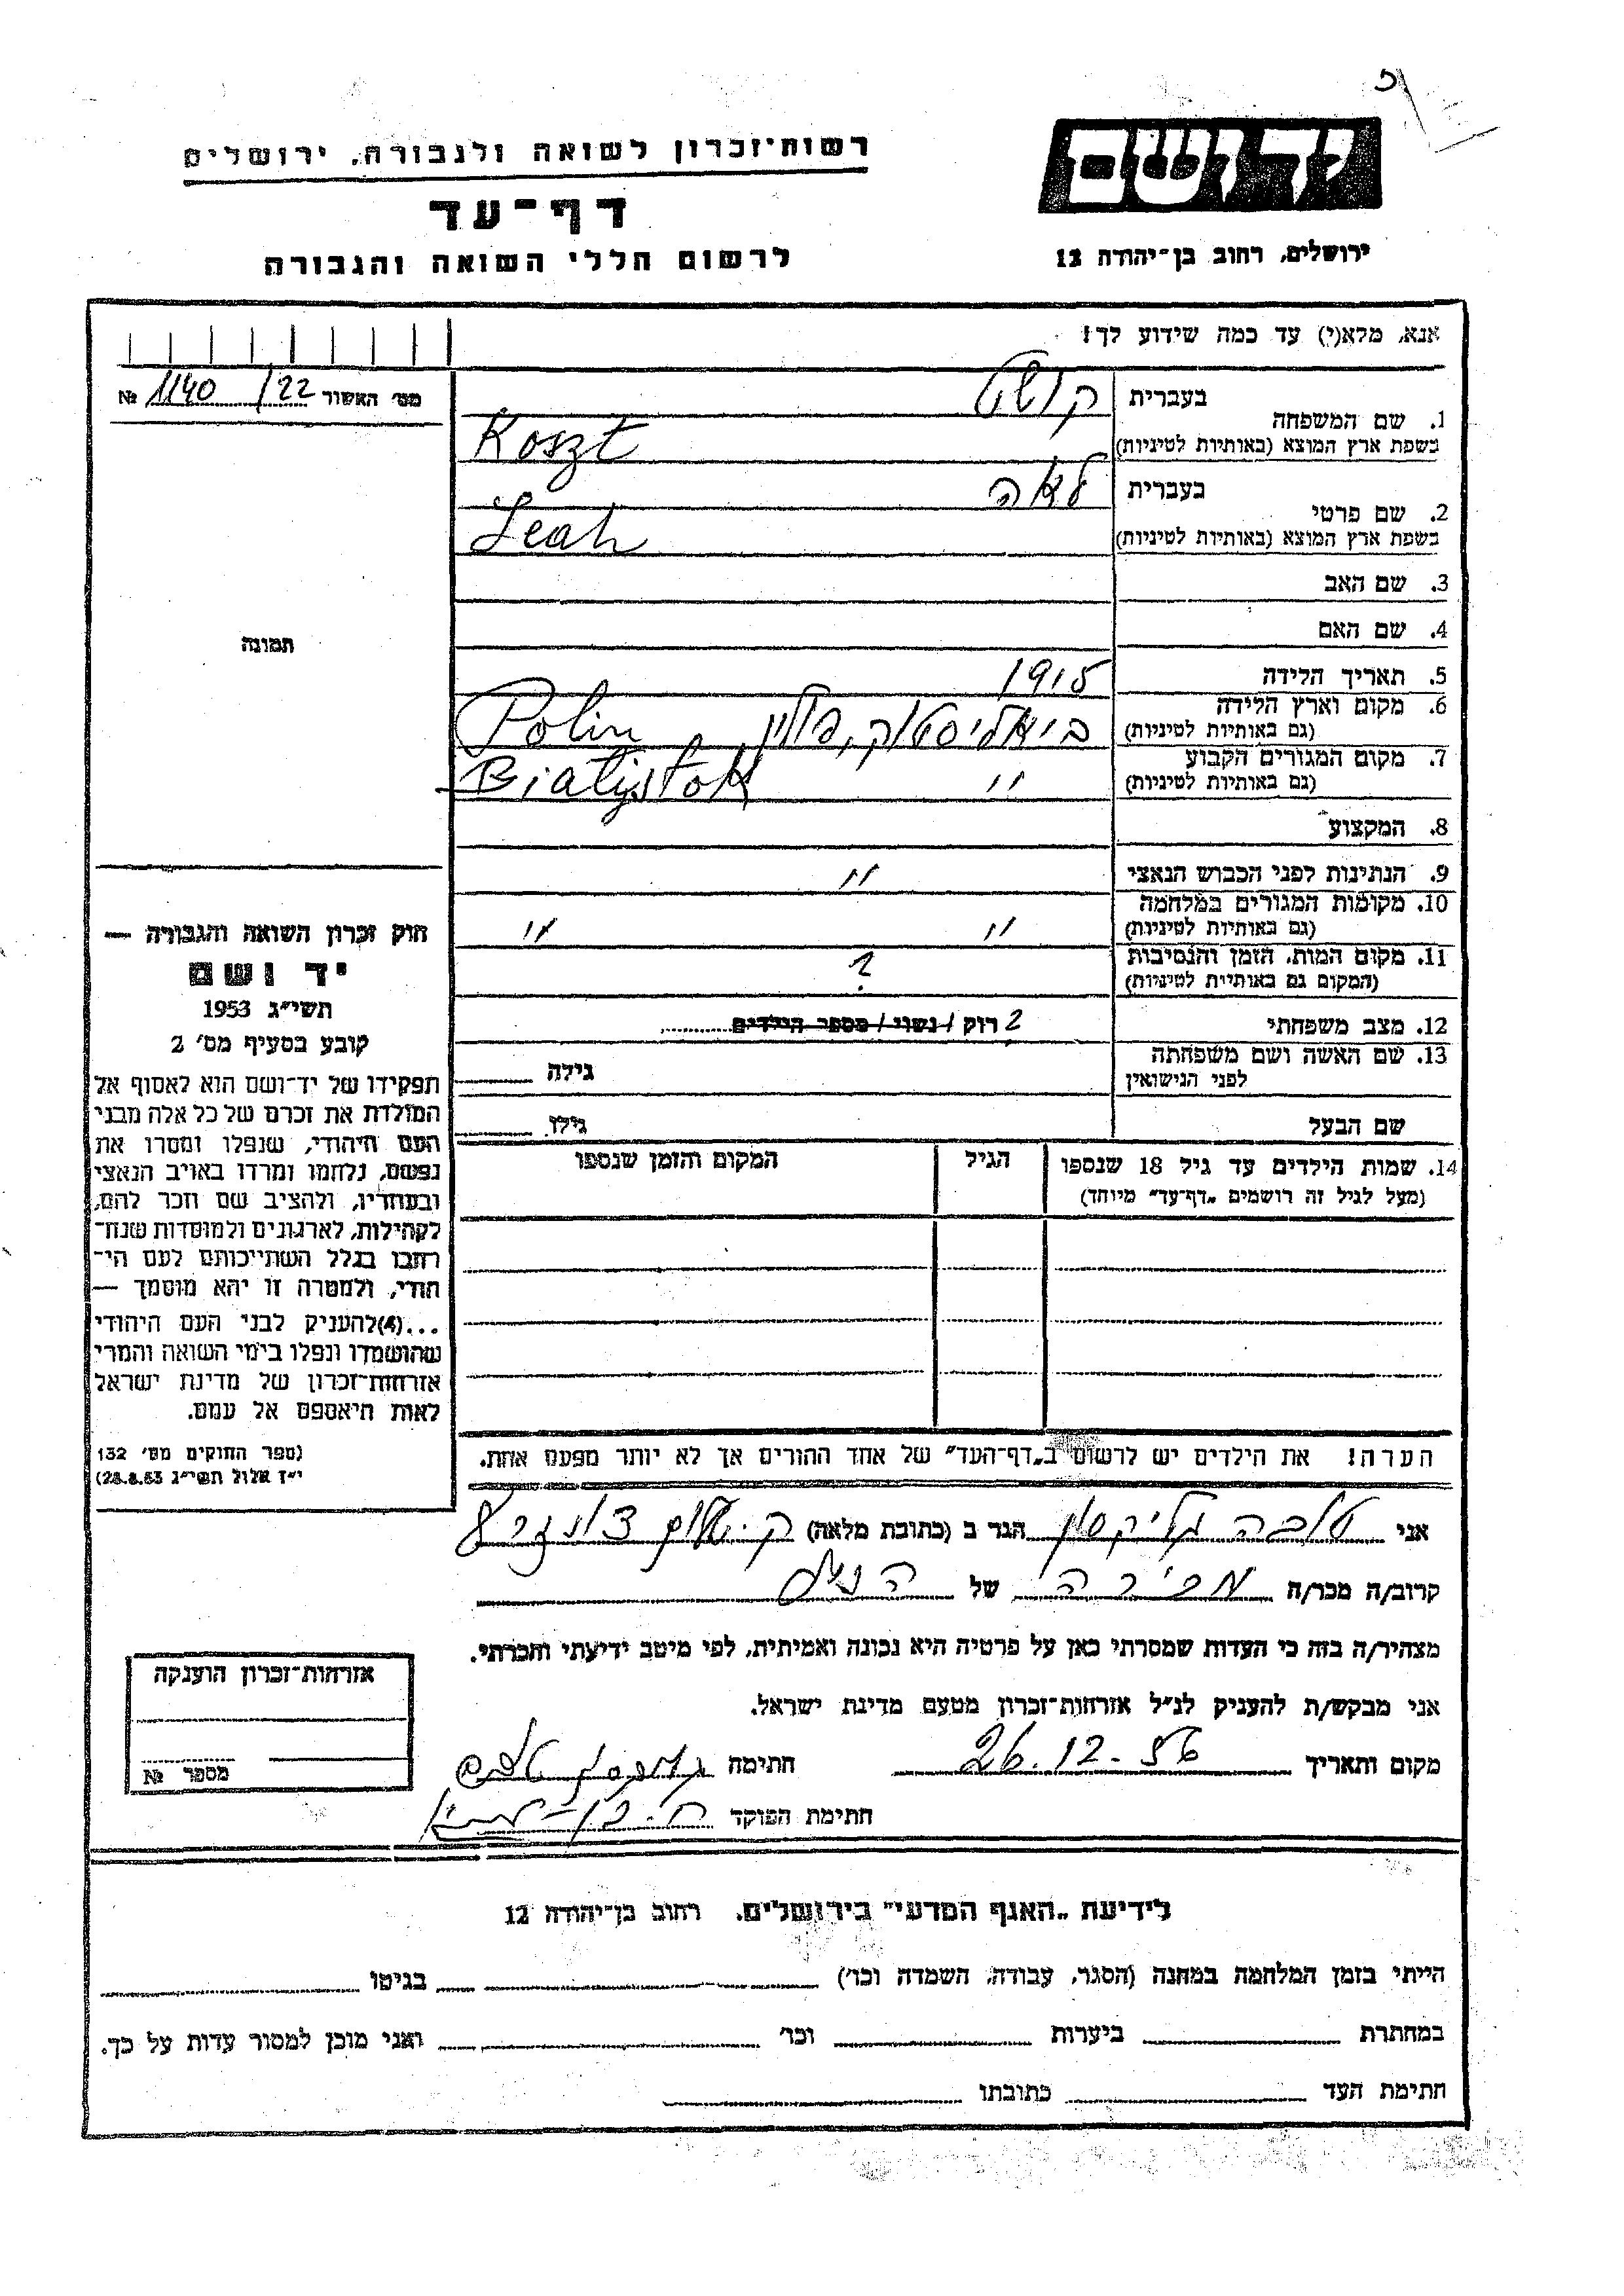 יד ושם
ירושלים, רחוב בן־יהודה 12
רשות־זכרון לשואה ולגבורה, ירושלים
דף־עד
לרשום חללי השואה והגבורה
אנא, מלא(י) עד כמה שידוע לך!
מס׳ האשור 22/ 1140 №
תמונה
1. שם המשפחה
בעברית קושט
בשפת ארץ המוצא (באותיות לטיניות) Koszt
2. שם פרטי
בעברית לאה
בשפת ארץ המוצא (באותיות לטיניות) Leah
3. שם האב
4. שם האם
5. תאריך הלידה 1915
6. מקום וארץ הלידה ביאליסטוק, פולין Polin
(גם באותיות לטיניות)
7. מקום המגורים הקבוע
(גם באותיות לטיניות) " Bialystok
8. המקצוע
9. הנתינות לפני הכבוש הנאצי "
10. מקומות המגורים במלחמה
(גם באותיות לטיניות) " "
11. מקום המות, הזמן והנסיבות ?
(המקום גם באותיית לטיניות)
12. מצב משפחתי ? רוק / נשוי / מספר הילדים
13. שם האשה ושם משפחתה
לפני הנישואין גילה
שם הבעל גילו
14. שמות הילדים עד גיל 18 שנספו הגיל המקום והזמן שנספו
(מעל לגיל זה רושמים „דף־עד" מיוחד)
הערה! את הילדים יש לרשום ב„דף־העד" של אחד ההורים אך לא יותר מפעם אחת.
חוק זכרון השואה והגבורה —
יד ושם
תשי״ג 1953
קובע בסעיף מס׳ 2
תפקידו של יד־ושם הוא לאסוף אל
המולדת את זכרם של כל אלה מבני
העם היהודי, שנפלו ומסרו את
נפשם, נלחמו ומרדו באויב הנאצי
ובעוזריו, ולהציב שם וזכר להם,
לקהילות, לארגונים ולמוסדות שנח־
רחבו בגלל השתייכותם לעם הי־
הודי, ולמטרה זו יהא מוסמך —
...(4)להעניק לבני העם היהודי
שהושמדו ונפלו בימי השואה והמרי
אזרחות־זכרון של מדינת ישראל
לאות היאספם אל עמם.
(ספר החוקים מס׳ 132
י״ז אלול תשי״ג 28.8.53)
אני טובה גליקסון הגר ב (כתובת מלאה) ק. שלום
קרוב/ה מכר/ה מכירה של הנ״ל
מצהיר/ה בזה כי העדות שמסרתי כאן על פרטיה היא נכונה ואמיתית, לפי מיטב ידיעתי והכרתי.
אני מבקש/ת להעניק לנ״ל אזרחות־זכרון מטעם מדינת ישראל.
מקום ותאריך 26.12.56 חתימה
חתימת הפוקד
אזרחות־זכרון הוענקה
מספר №
לידיעת „האגף המדעי" בירושלים, רחוב בן־יהודה 12
הייתי בזמן המלחמה במחנה (הסגר, עבודה, השמדה וכו׳) בגיטו
במחתרת ביערות וכו׳ ואני מוכן למסור עדות על כך.
חתימת העד כתובתו